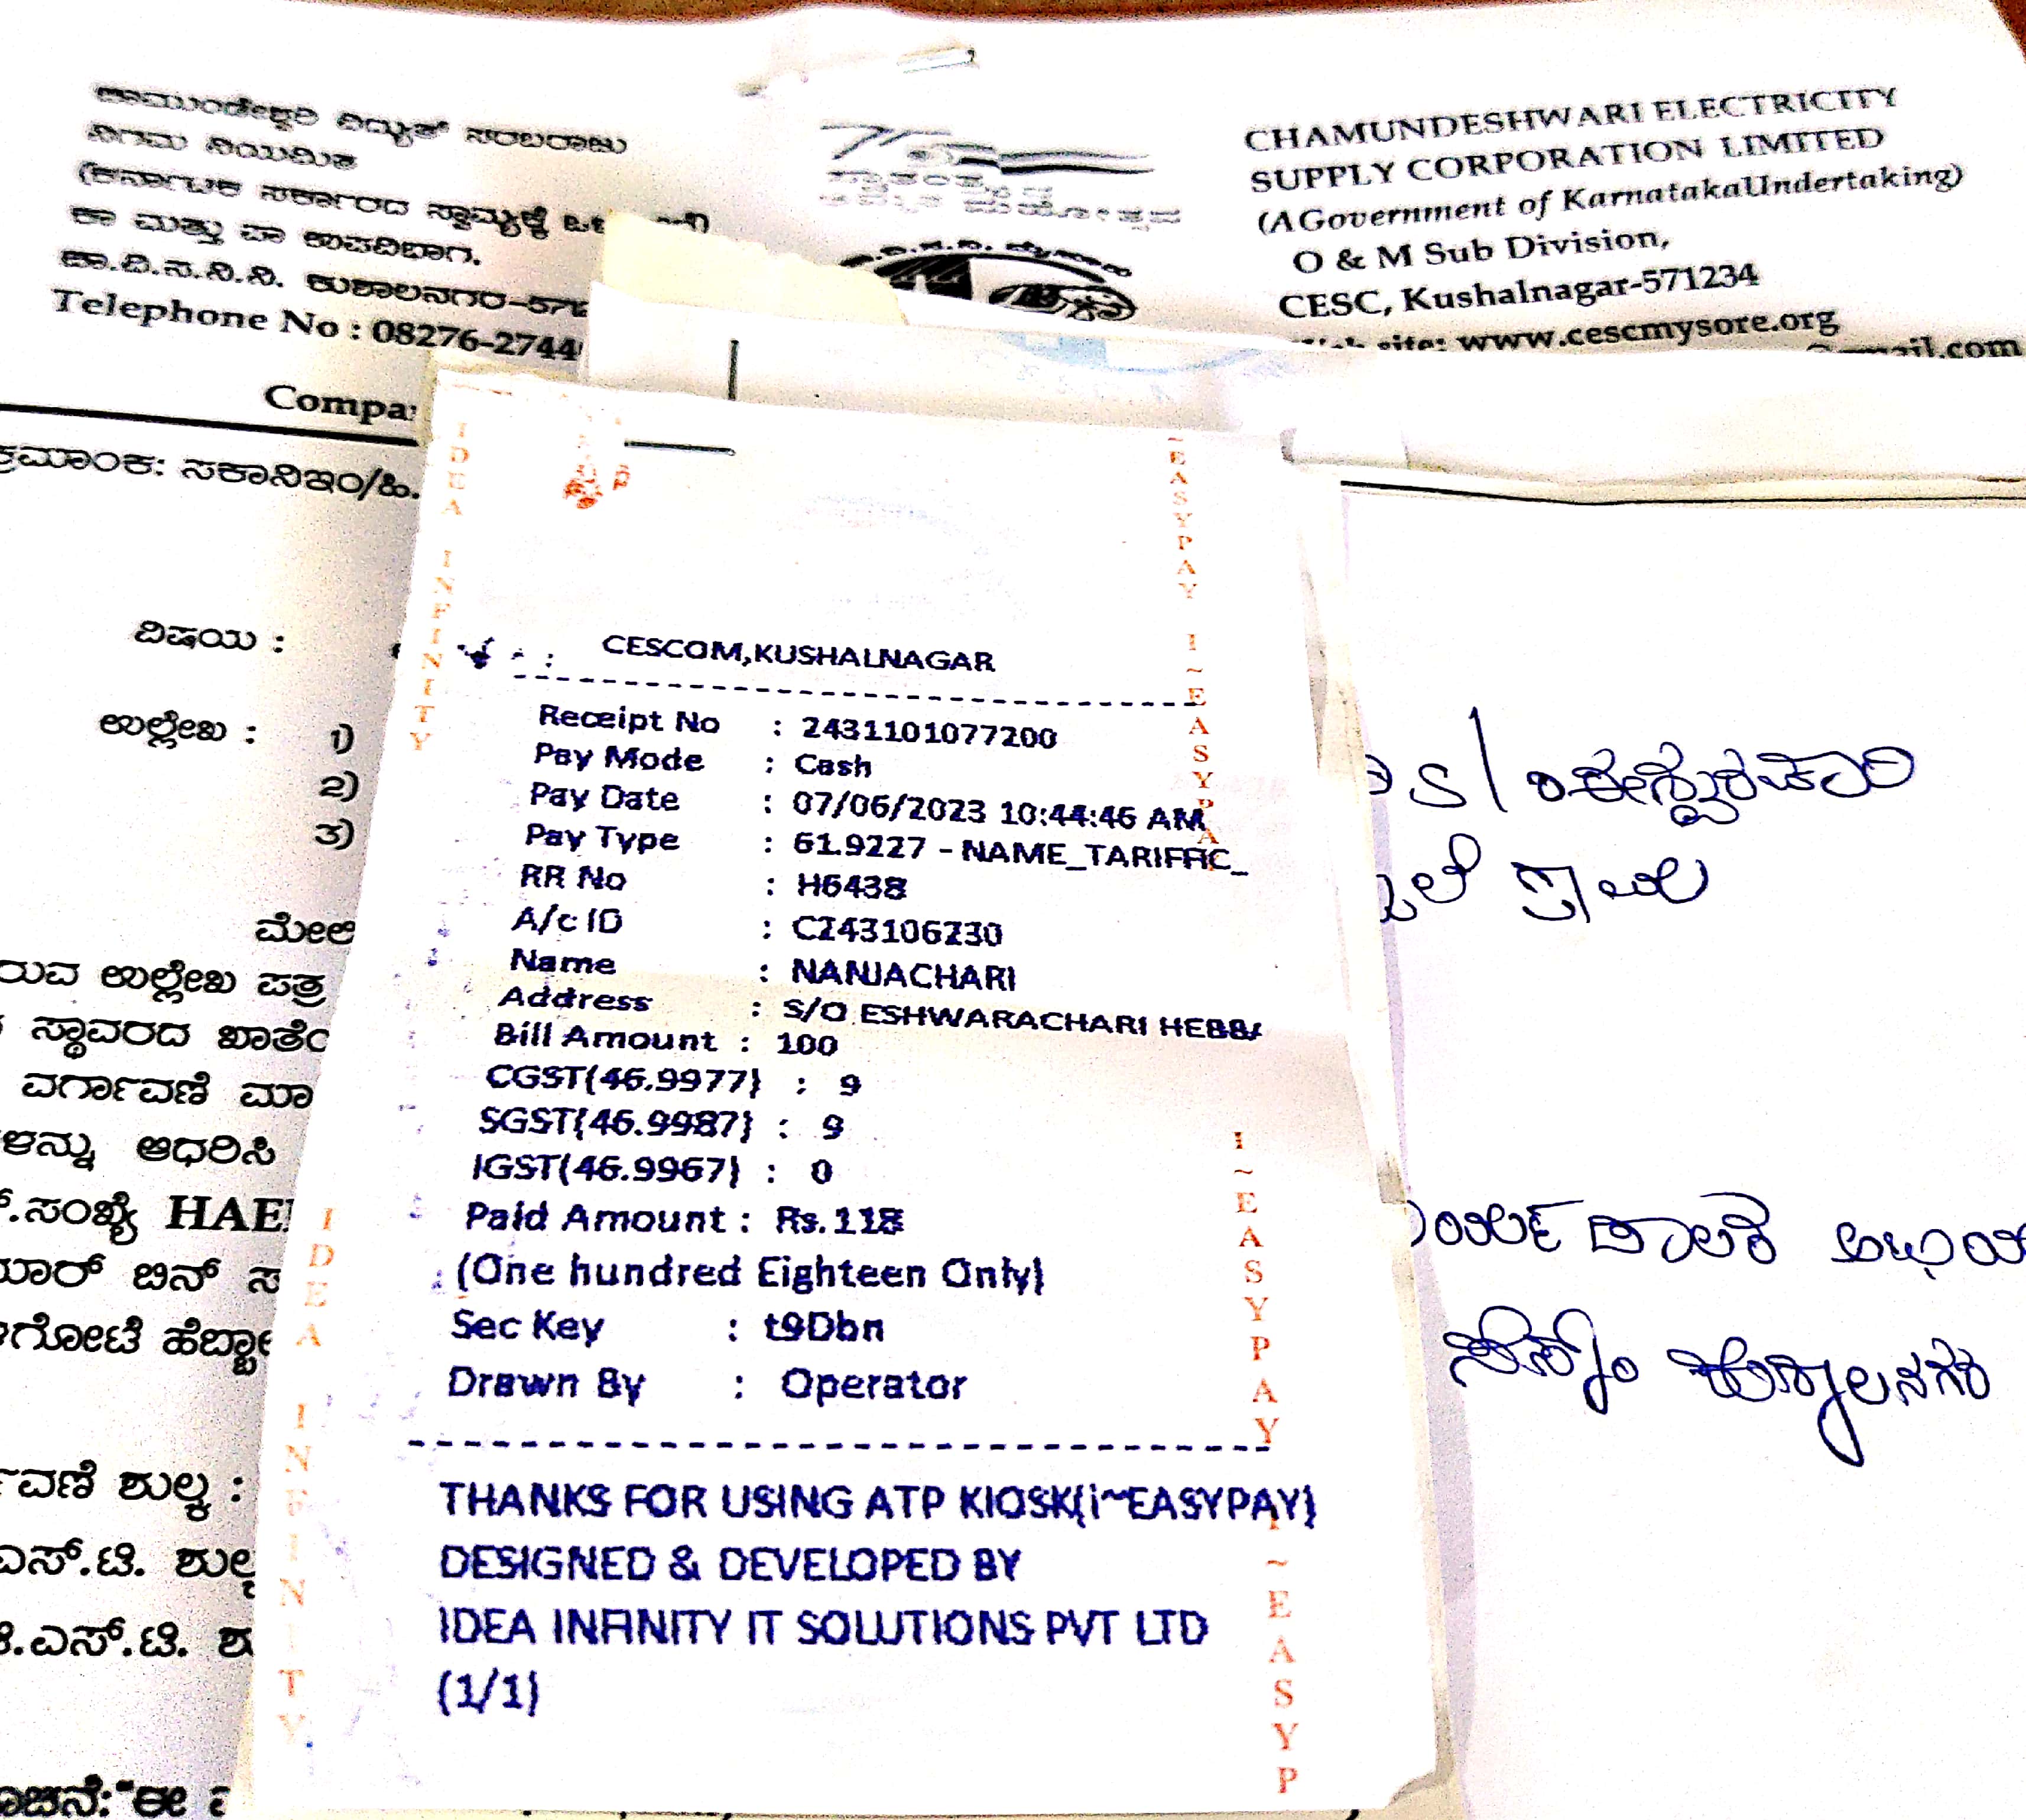 ಚಾಮುಂಡೇಶ್ವರಿ ವಿದ್ಯುತ್ ಸರಬರಾಜು
ನಿಗಮ ನಿಯಮಿತ
(ಕರ್ನಾಟಕ ಸರ್ಕಾರದ ಸ್ವಾಮ್ಯಕ್ಕೆ
ಕಾ ಮತ್ತು ಪಾ ಉಪವಿಭಾಗ.
ಚಾ.ವಿ.ಸ.ನಿ.ನಿ. ಕುಶಾಲನಗರ-571
Telephone No : 08276-2744
CHAMUNDESHWARI ELECTRICITY
SUPPLY CORPORATION LIMITED
(A Government of Karnataka Undertaking)
O & M Sub Division,
CESC, Kushalnagar-571234
site: www.cescmysore.org
@gmail.com
Compa
ಕ್ರಮಾಂಕ: ಸಕಾನಿಇಂ/ಹಿ.
ವಿಷಯ :
ಉಲ್ಲೇಖ : 1)
2)
3)
ಮೇಲಿ
ರುವ ಉಲ್ಲೇಖ ಪತ್ರ
ಸ್ಥಾವರದ ಖಾತೆಂ
ವರ್ಗಾವಣೆ ಮಾ
ಳನ್ನು ಆಧರಿಸಿ
.ಸಂಖ್ಯೆ HAE
ಮಾರ್ ಬಿನ್ ಸ
ಗೋಟೆ ಹೆಬ್ಬಾ
ವಣೆ ಶುಲ್ಕ :
ಎಸ್.ಟಿ. ಶುಲ್ಕ
.ಎಸ್.ಟಿ. ಶು
ಚನೆ:"ಈ
IDEA INFINITY
I~EASYPAY I~EASYPA
CESCOM,KUSHALNAGAR
Receipt No : 2431101077200
Pay Mode : Cash
Pay Date : 07/06/2023 10:44:46 AM
Pay Type : 61.9227 - NAME_TARIFFIC_
RR No : H6438
A/c ID : C243106230
Name : NANJACHARI
Address : S/O ESHWARACHARI HEBBA
Bill Amount : 100
CGST(46.9977) : 9
SGST(46.9987) : 9
IGST(46.9967) : 0
Paid Amount : Rs.118
(One hundred Eighteen Only)
Sec Key : t9Dbn
Drawn By : Operator
THANKS FOR USING ATP KIOSK(i~EASYPAY)
DESIGNED & DEVELOPED BY
IDEA INFINITY IT SOLUTIONS PVT LTD
(1/1)
IDEA INFINITY
I~EASYPAY
I~EASYP
S/
ಗ್ರಾಮ
ಕುಶಾಲನಗರ